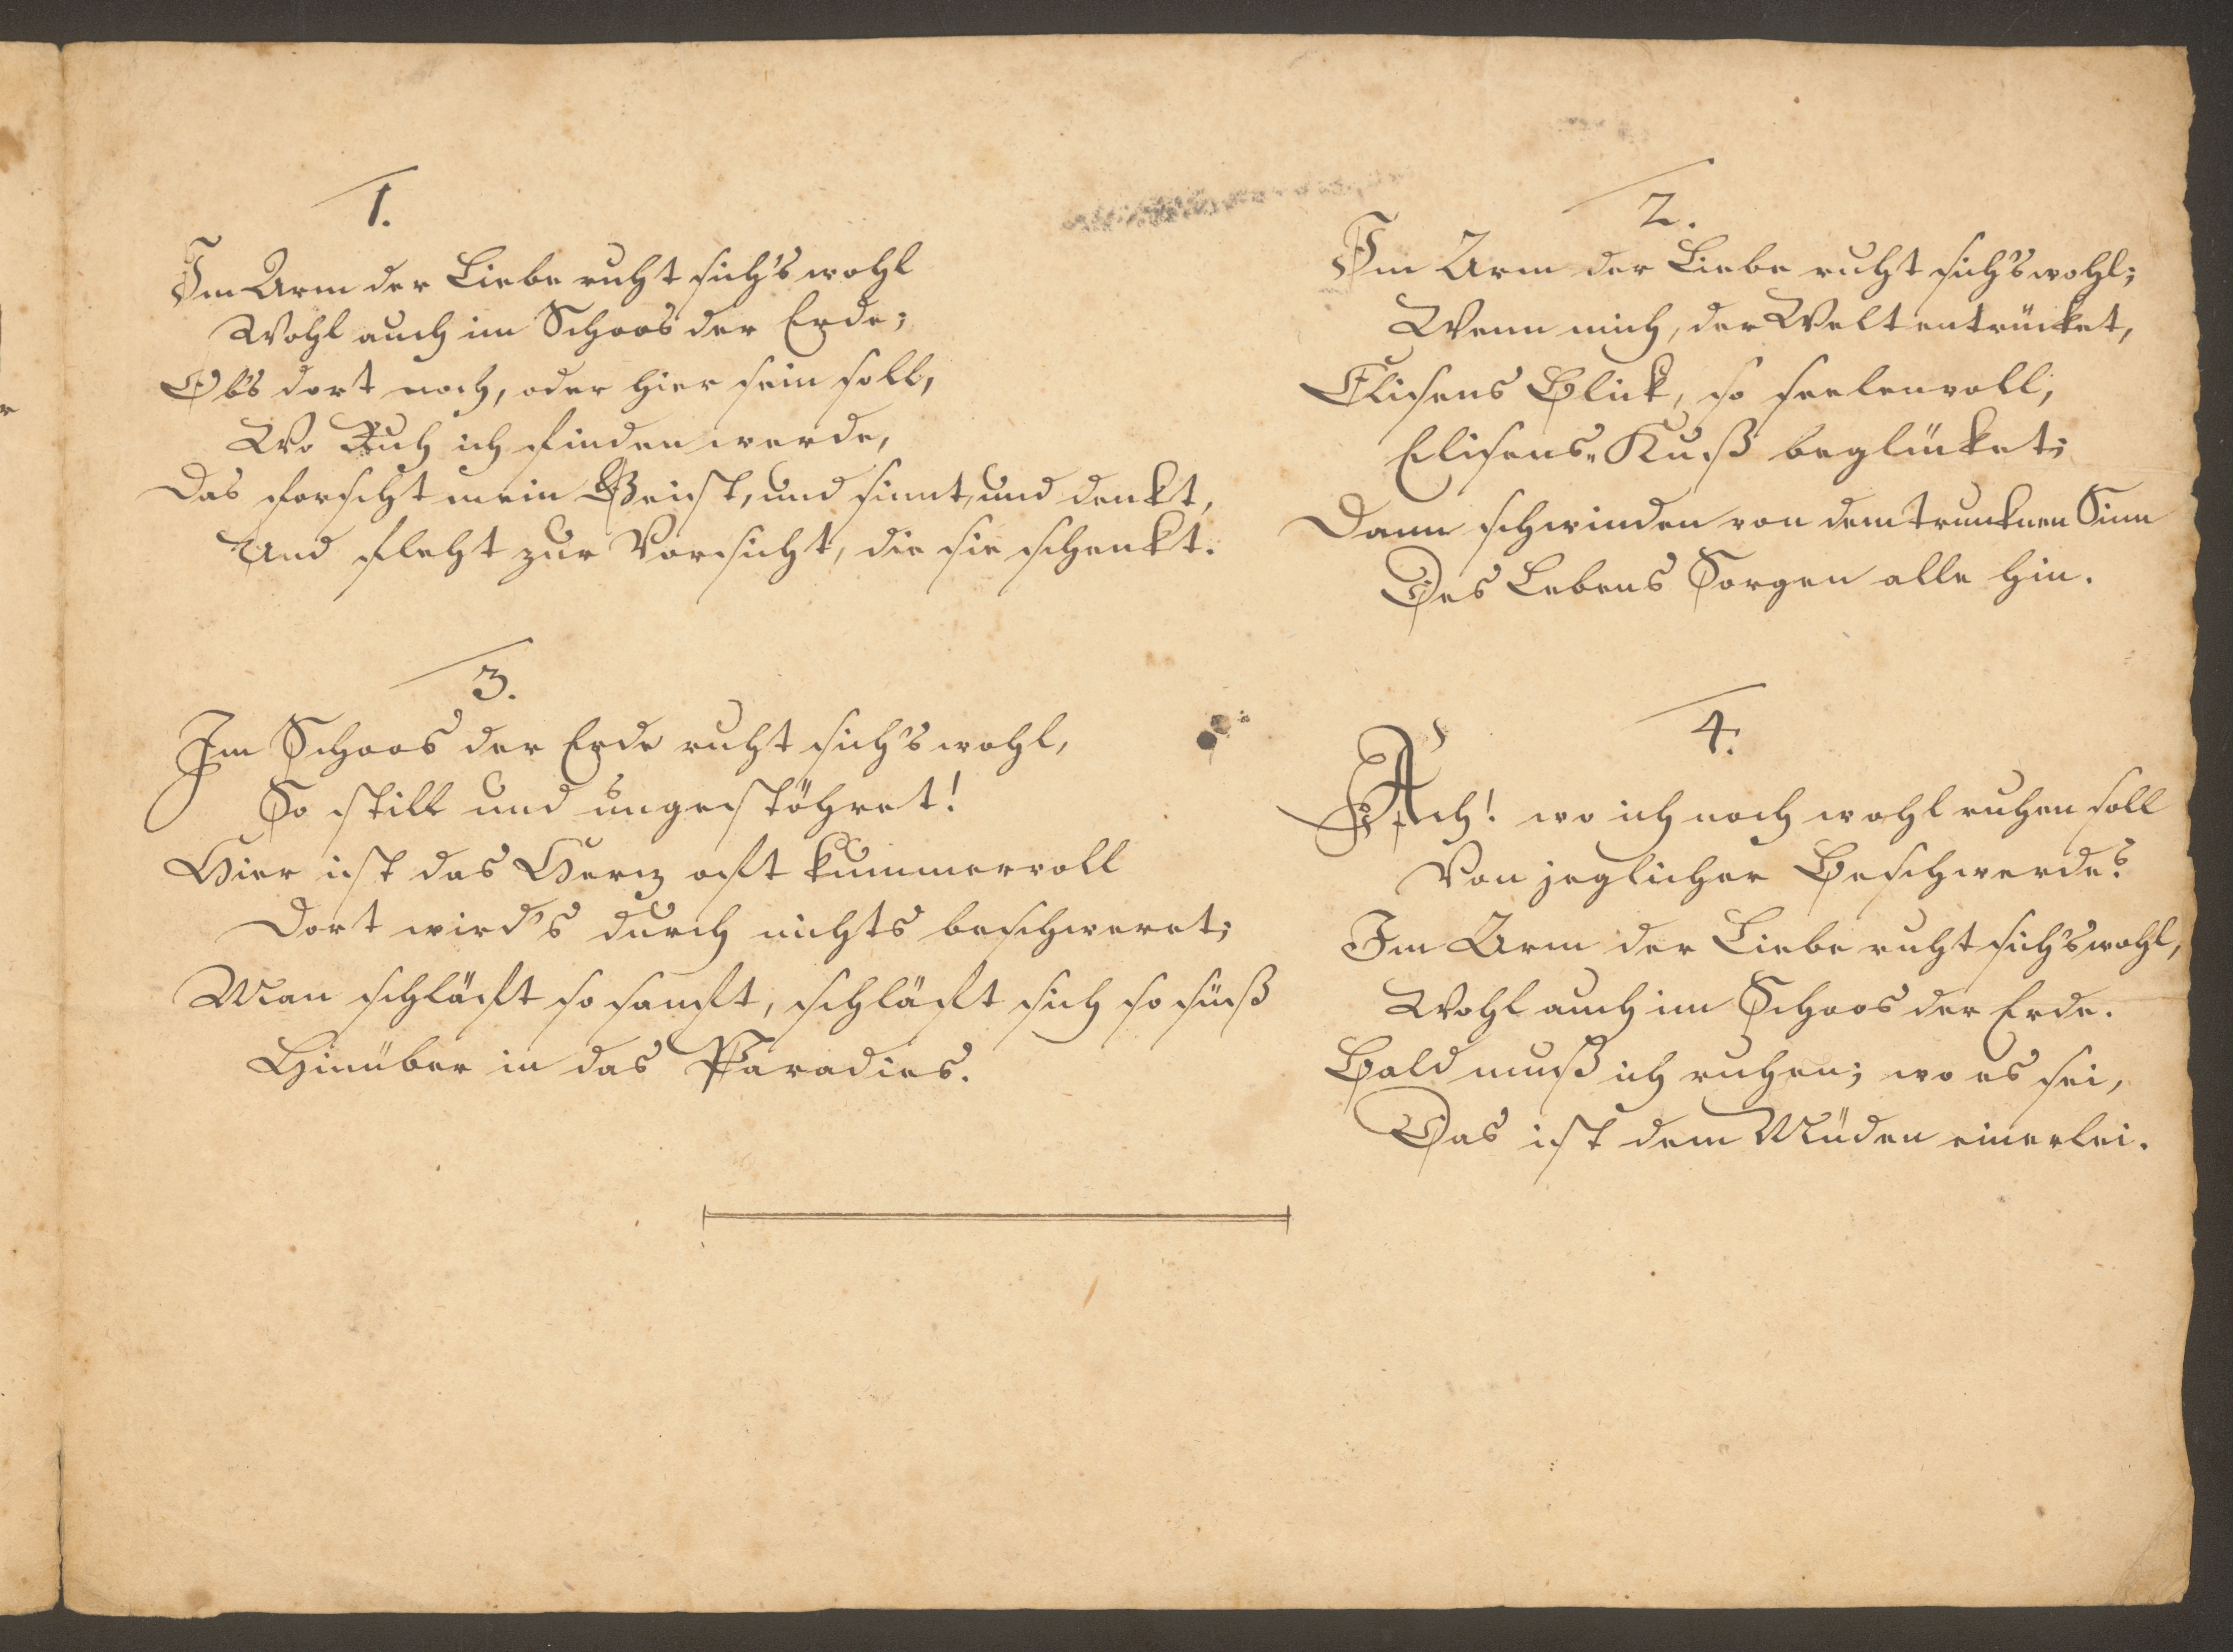 1.
Im Arm der Liebe ruht sich's wohl
Wohl auch im Schoos der Erde;
Ob's dort noch, oder hier sein soll,
Wo Ruh ich finden werde,
Das forscht mein Geist, und sinnt, und denkt,
Und fleht zur Vorsicht, die sie schenkt.
2.
Im Arm der Liebe ruht sich's wohl;
Wenn mich, der Welt entrücket,
Elisens Blick, so seelenvoll,
Elisens Kuß beglücket;
Dann schwinden von dem trunknen Sinn
Des Lebens Sorgen alle hin.
3.
Im Schoos der Erde ruht sich's wohl,
So still und ungestöhret!
Hier ist das Herz oft kummervoll
Dort wird's durch nichts beschweret;
Man schläft so sanft, schläft sich so süß
Hinüber in das Paradies.
4.
Ach! wo ich noch wohl ruhen soll
Von jeglicher Beschwerde?
Im Arm der Liebe ruht sich's wohl,
Wohl auch im Schoos der Erde.
Bald muß ich ruhen; wo es sei,
Das ist dem Müden einerlei.